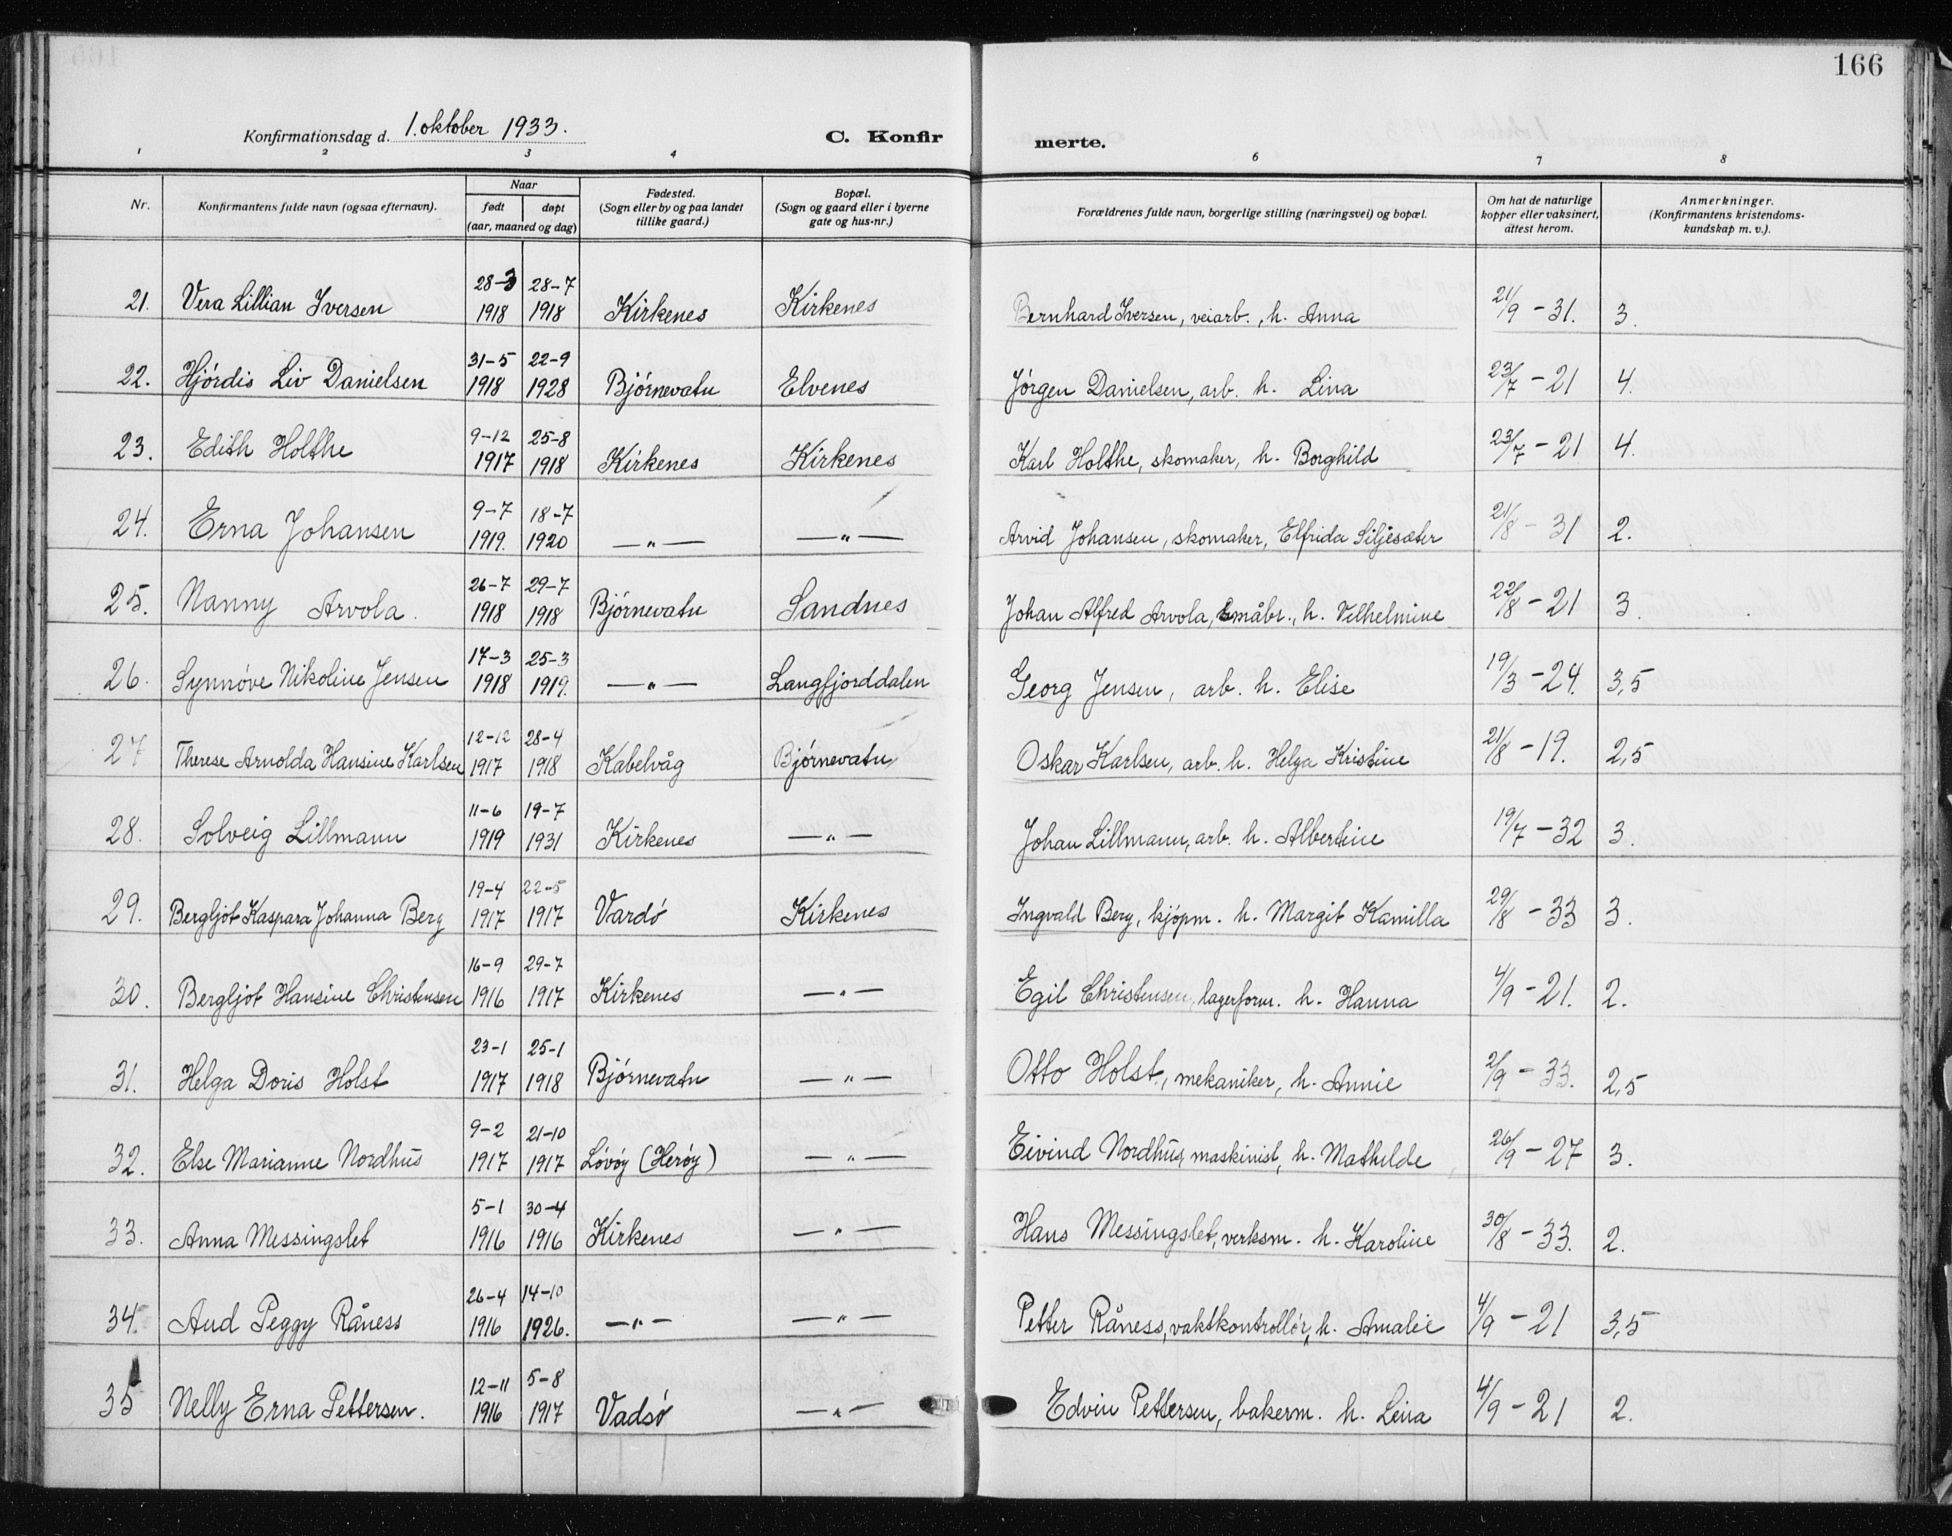 166
Konfirmationsdag d. 1. oktober 1933. C. Konfir merte.
1 2 3 4 6 7 8
Nr. Konfirmantens fulde navn (ogsaa efternavn). Naar født døpt (aar, maaned og dag) Fødested. (Sogn eller by og paa landet tillike gaard.) Bopæl. (Sogn og gaard eller i byerne gate og hus-nr.) Forældrenes fulde navn, borgerlige stilling (næringsvei) og bopæl. Om hat de naturlige kopper eller vaksinert, attest herom. Anmerkninger. (Konfirmantens kristendoms-kundskap m. v.).
21. Vera Lillian Iversen 28-3 1918 28-7 1918 Kirkenes Kirkenes Bernhard Iversen, veiarb., h. Anna 21/9 - 31. 3.
22. Hjórdis Liv Danielsen 31-5 1918 22-9 1928 Bjórnevatn Elvenes Jórgen Danielsen, arb. h. Lina 23/7 - 21 4.
23. Edith Holthe 9-12 1917 25-8 1918 Kirkenes Kirkenes Karl Holthe, skomaker, h. Borghild 23/7 - 21 4.
24. Erna Johansen 9-7 1919. 18-7 1920 —"— —"— Arvid Johansen, skomaker, Elfrida Siljesæter 21/8 - 31 2.
25. Nanny Arvola. 26-7 1918 29-7 1918 Bjórnevatn Sandnes Johan Alfred Arvola, småbr., h. Vilhelmine 22/8 - 21 3.
26. Synnóve Nikoline Jensen 17-3 1918 25-3 1919. —"— Langfjorddalen Georg Jensen, arb. h. Elise 19/3 - 24. 3,5
27 Therese Arnolda Hansine Karlsen 12-12 1917 28-4 1918 Kabelvåg Bjórnevatn Oskar Karlsen, arb. h. Helga Kristine 21/8 - 19. 2,5
28. Solveig Lillmann 11-6 1919 19-7 1931 Kirkenes —"— Johan Lillmann, arb. h. Albertine 19/7 - 32 3.
29. Bergljot Kaspara Johanna Berg 19-4 1917 22-5 1917 Vardó Kirkenes Ingvald Berg, kjópm. h. Margit Kamilla 29/8 - 33 3.
30. Bergljot Hansine Christensen 16-9 1916 29-7 1917 Kirkenes —"— Egil Christensen, lagerform. h. Hanna 4/9 - 21. 2.
31. Helga Doris Holst 23-1 1917 25-1 1918 Bjórnevatn —"— Otto Holst, mekaniker, h. Annie 2/9 - 33. 2,5
32. Else Marianne Nordhus 9-2 1917 21-10 1917 Lóvóy (Heróy) —"— Eivind Nordhus, maskinist, h. Mathilde 26/9 - 27 3.
33. Anna Messingslet 5-1 1916 30-4 1916 Kirkenes —"— Hans Messingslet, verksm. h. Karoline 30/8 - 33. 2.
34. Aud Peggy Råness 26-4 1916 14-10 1926. —"— —"— Petter Råness, vaktkontrollór, h. Amalie 4/9 - 21 3,5
35 Nelly Erna Pettersen. 12-11 1916 5-8 1917 Vadsó —"— Edvin Pettersen, bakerm. h. Lina 4/9 - 21 2.